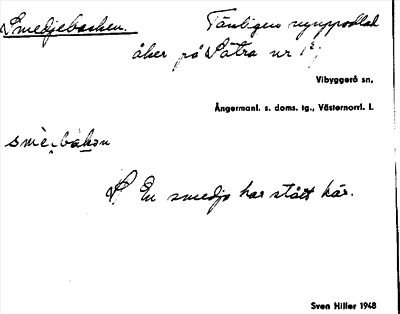 Smedjebacken. Tämligen nyupptodlad
åker på Sätra nr 1
Vibyggerå sn,
Ångermanl. s. doms. tg., Västernorrl. l.
smè̀bakən
En smedja har stått här.
Sven Hiller 1948